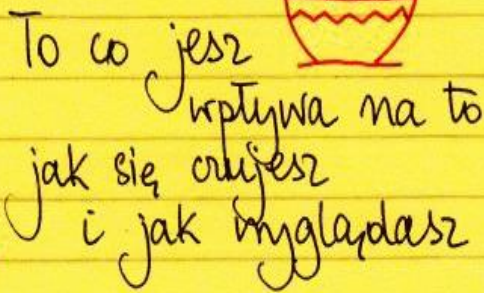 To co jesz
wpływa na to
jak się czujesz
i jak wyglądasz